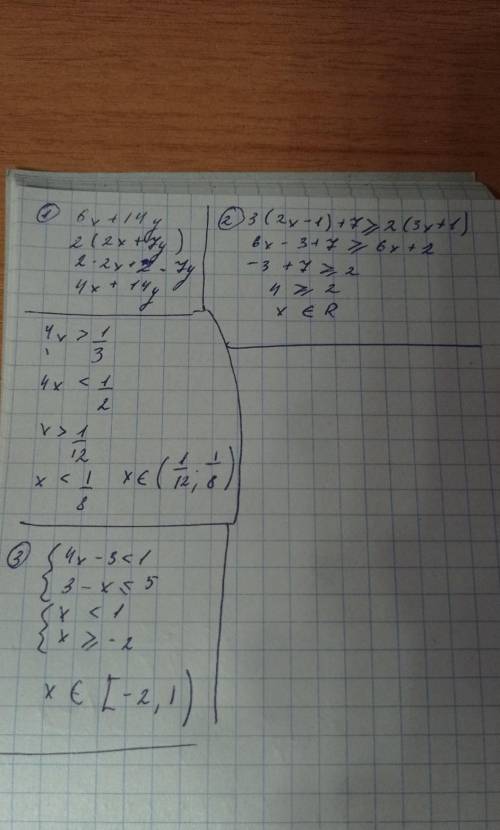 ① 6x+14y
2(2x+7y)
2·2x+2·7y
4x+14y
② 3(2x-1)+7≥2(3x+1)
6x-3+7≥6x+2
-3+7≥2
4≥2
x∈R
4x>1/3
4x<1/2
x>1/12
x<1/8 x∈(1/12;1/8)
③ {4x-3<1
3-x≤5
{x<1
x≥-2
x∈[-2,1)